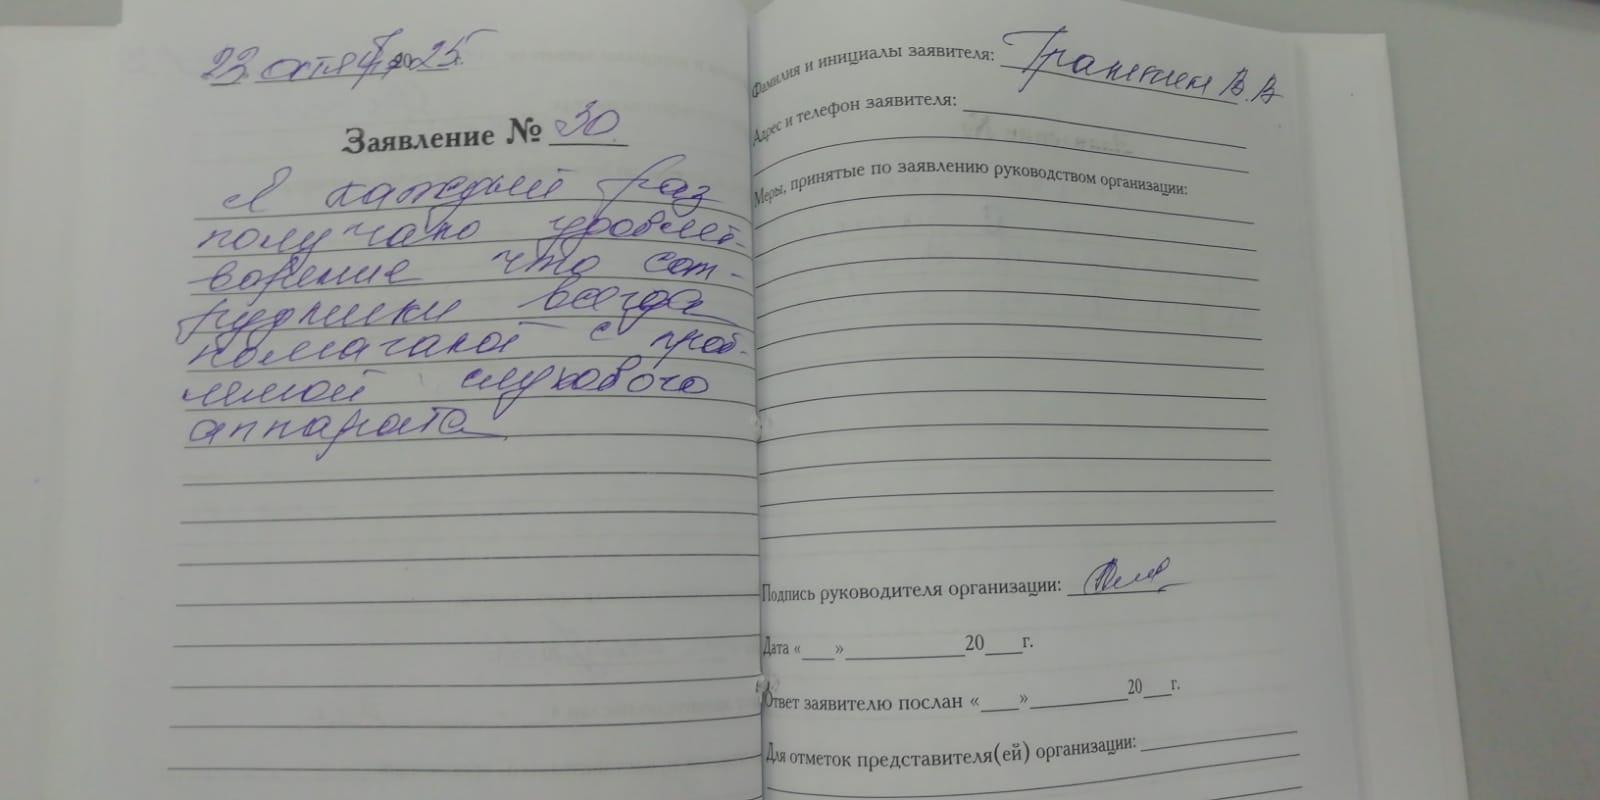 23 октября 2025
Заявление № 30
Я каждый раз
получаю удовлет-
ворение что сот-
рудники всегда
помагают с проб-
лемой слухового
аппарата
Фамилия и инициалы заявителя: В.В
Адрес и телефон заявителя:
Меры, принятые по заявлению руководством организации:
Подпись руководителя организации:
Дата «___»__________20___г.
Ответ заявителю послан «___»________20__г.
Для отметок представителя(ей) организации: